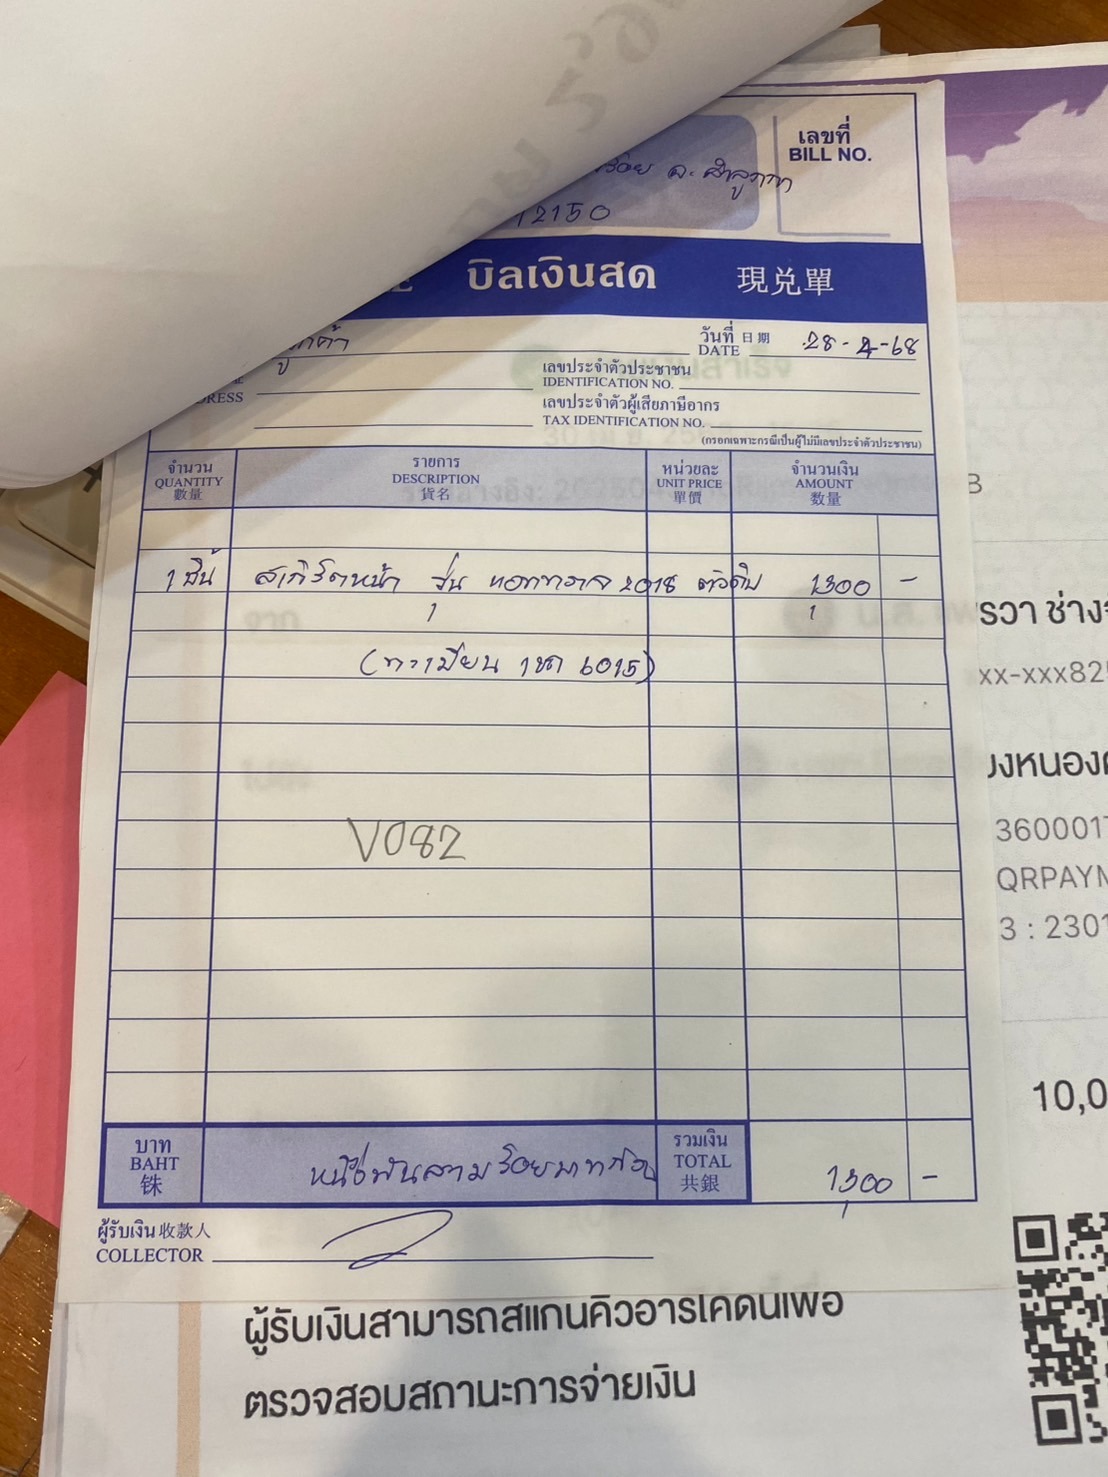 เลขที่
BILL NO.
จ. ลำลูกกา
12150
บิลเงินสด 現兑單
ลูกค้า
วันที่ 日期
DATE 28-4-68
เลขประจำตัวประชาชน
IDENTIFICATION NO.
RESS
เลขประจำตัวผู้เสียภาษีอากร
TAX IDENTIFICATION NO.
(กรอกเฉพาะกรณีเป็นผู้ไม่มีเลขประจำตัวประชาชน)
จำนวน รายการ หน่วยละ จำนวนเงิน
QUANTITY DESCRIPTION UNIT PRICE AMOUNT
數量 貨名 單價 数量
1 ชิ้น สเกิร์ตหน้า รุ่น 2018 ตัวดิบ 1,300 -
(ทะเบียน 1ขก 6015)
V082
บาท หนึ่งพันสามร้อยบาทถ้วน รวมเงิน
BAHT TOTAL 1,300 -
铢 共銀
ผู้รับเงิน 收款人
COLLECTOR
B
รวา ช่าง
xx-xxx82
องหนอง
360001
QRPAYM
3 : 2301
10,0
ผู้รับเงินสามารถสแกนคิวอาร์โค้ดนี้เพื่อ
ตรวจสอบสถานะการจ่ายเงิน